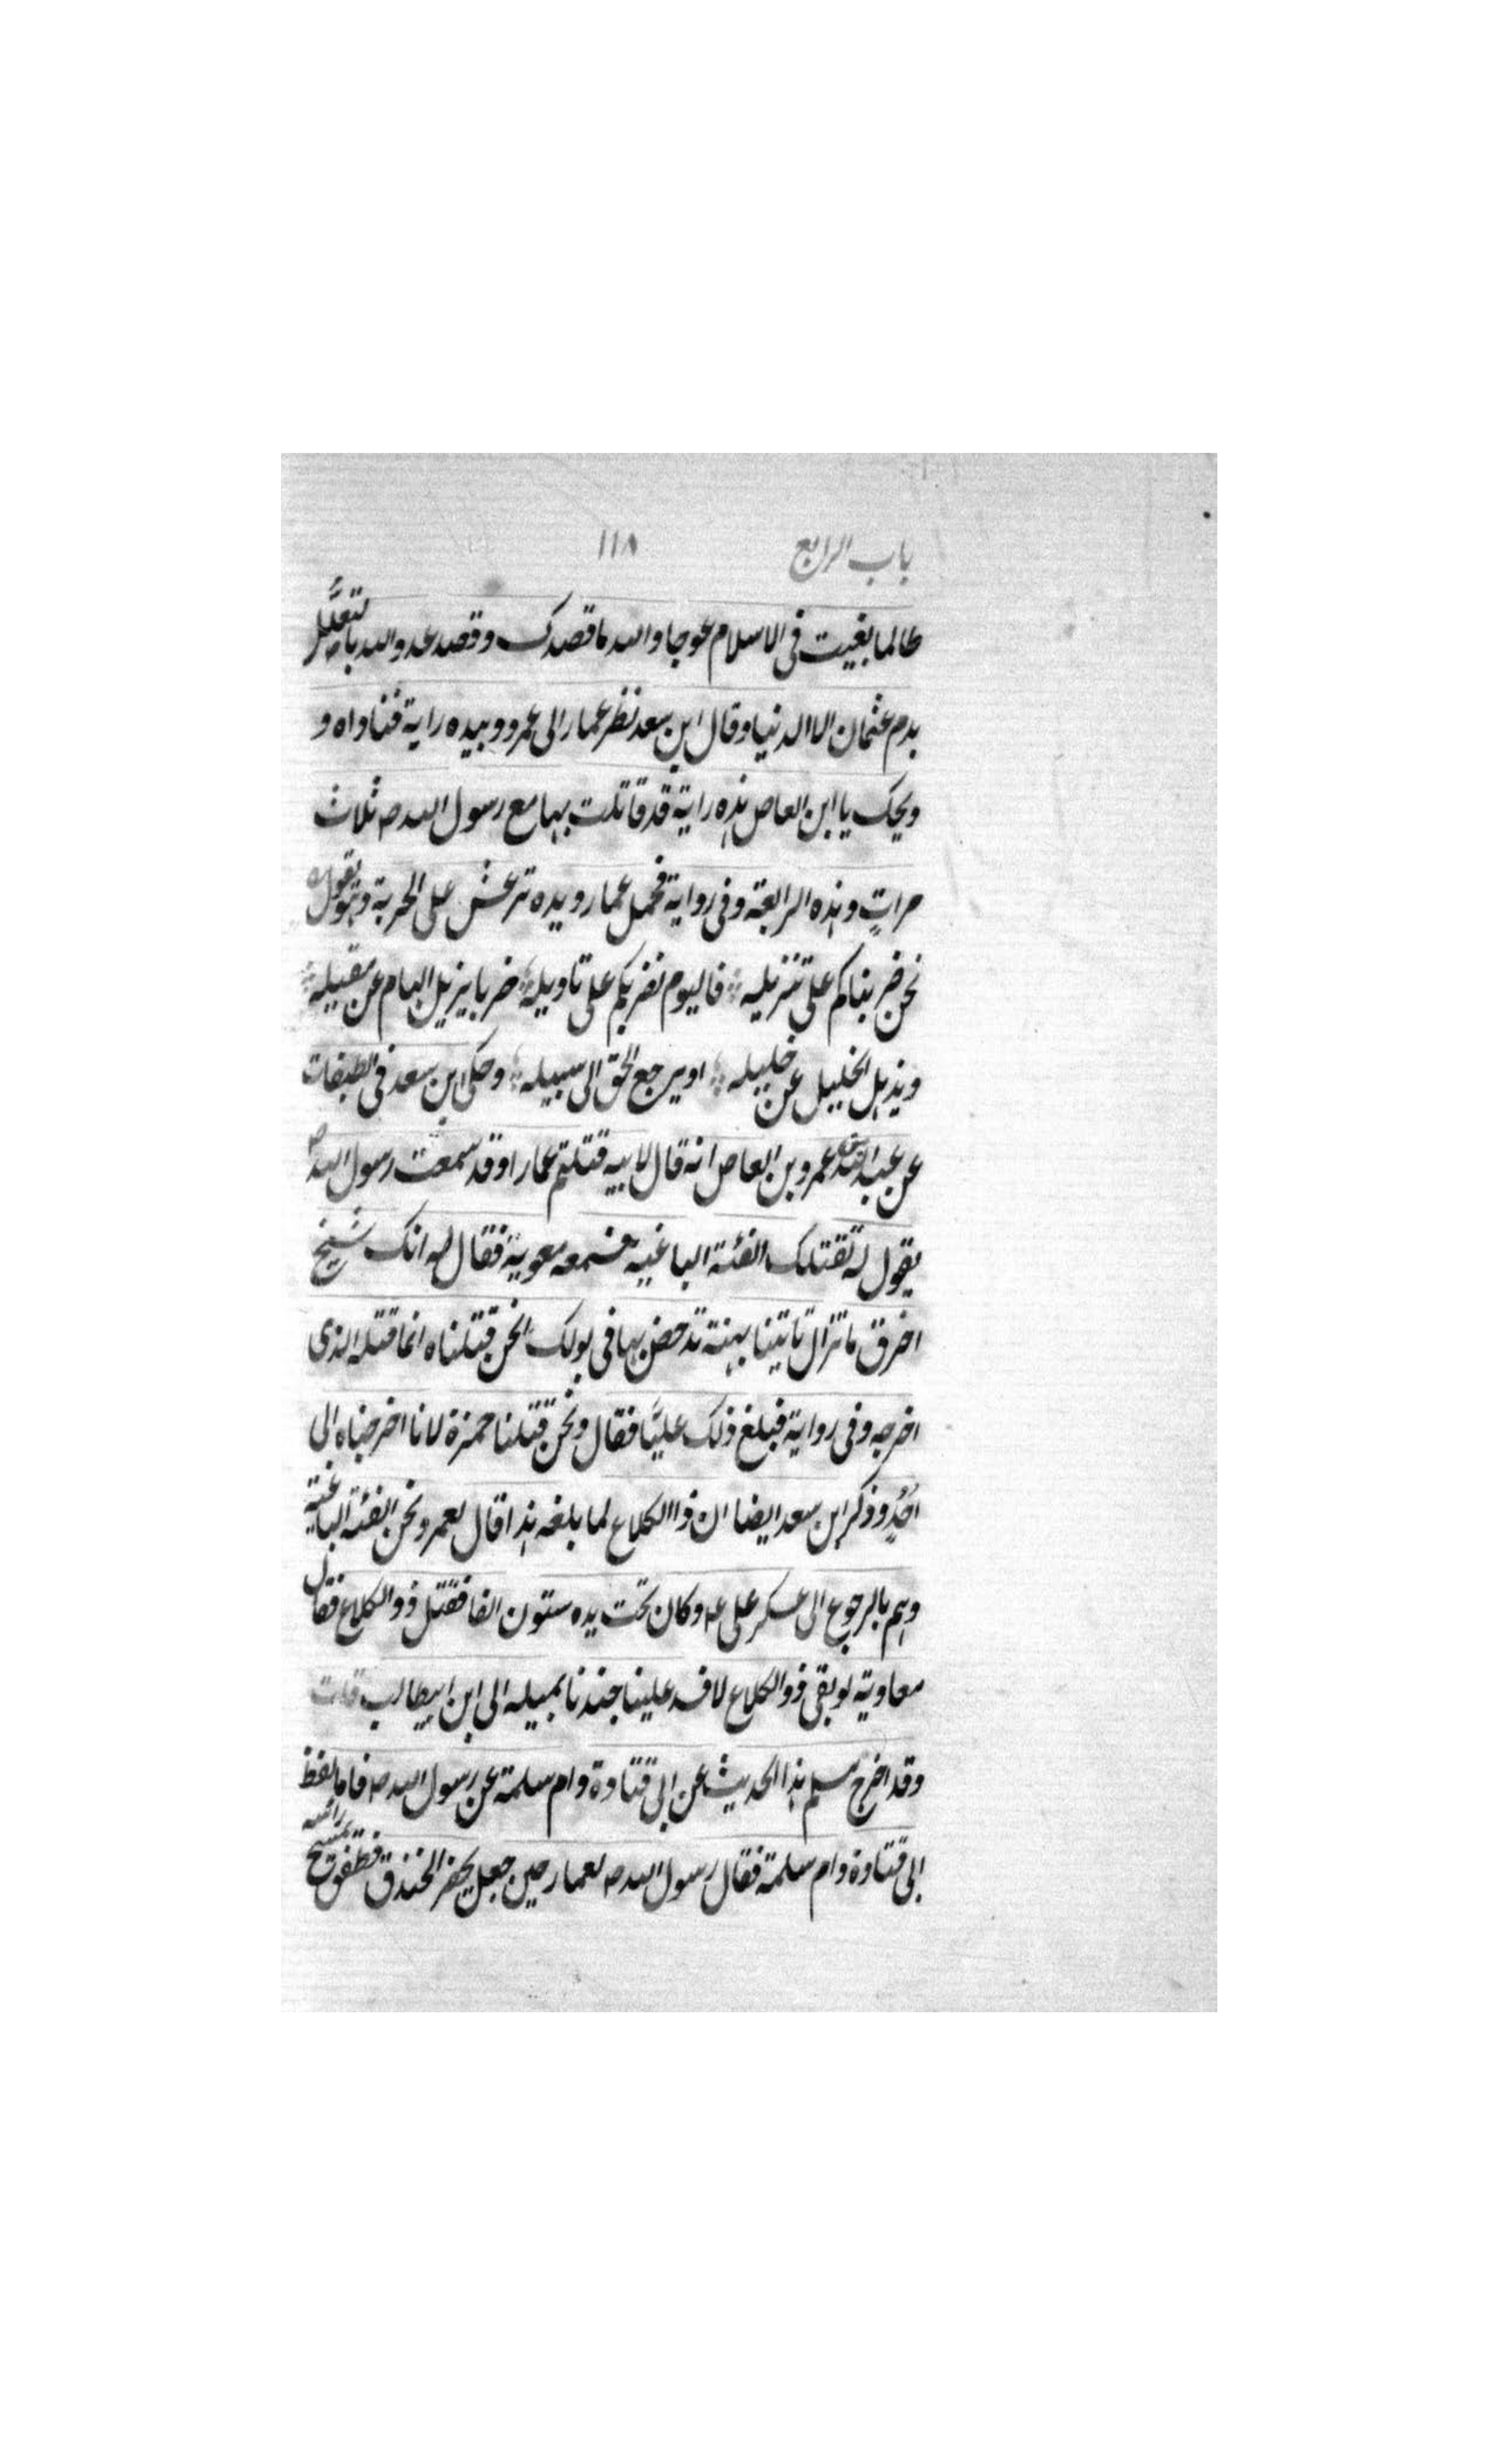 باب الرابع ۱۱۸
طالما بغیت فی الاسلام عوجا والله ما قصدک وقصد عدو الله بالتعلل
بدم عثمان الا الدنیا وقال ابن سعد نظر عمار الی عمرو وبیده رایة فناداه و
ویحک یا ابن العاص هذه رایة قد قاتلت بها مع رسول الله ص ثلاث
مراتٍ وهذه الرابعة وفی روایة فحمل عمار ویده ترعش علی الحربة وهو یقول
نحن ضربناکم علی تنزیله فالیوم نضربکم علی تاویله ضربا یزیل الهام عن مقیله
ویذهل الخلیل عن خلیله او یرجع الحق الی سبیله وحکی ابن سعد فی الطبقات
عن عبد الله بن عمرو بن العاص انه قال لابیه قتلتم عمارا وقد سمعت رسول الله ص
یقول له تقتلک الفئة الباغیة فسمعه معویة فقال له انک شیخ
اخرق ما تزال تاتینا بهنة تدحض بها فی بولک انحن قتلناه انما قتله الذی
اخرجه وفی روایة فبلغ ذلک علیًا فقال ونحن قتلنا حمزة لانا اخرجناه الی
اُحُدٍ وذکر ابن سعد ایضا ان ذا الکلاع لما بلغه هذا قال لعمرو نحن الفئة الباغیة
وهم بالرجوع الی عسکر علی ع وکان تحت یده ستون الفا فقتل ذو الکلاع فقال
معاویة لو بقی ذو الکلاع لافسد علینا جندنا بمیله الی ابن ابیطالب قلت
وقد اخرج مسلم هذا الحدیث عن ابی قتادة وام سلمة عن رسول الله ص فاما لفظ
ابی قتادة وام سلمة فقال رسول الله ص لعمار حین جعل یحفر الخندق فطفق یمسح راسه